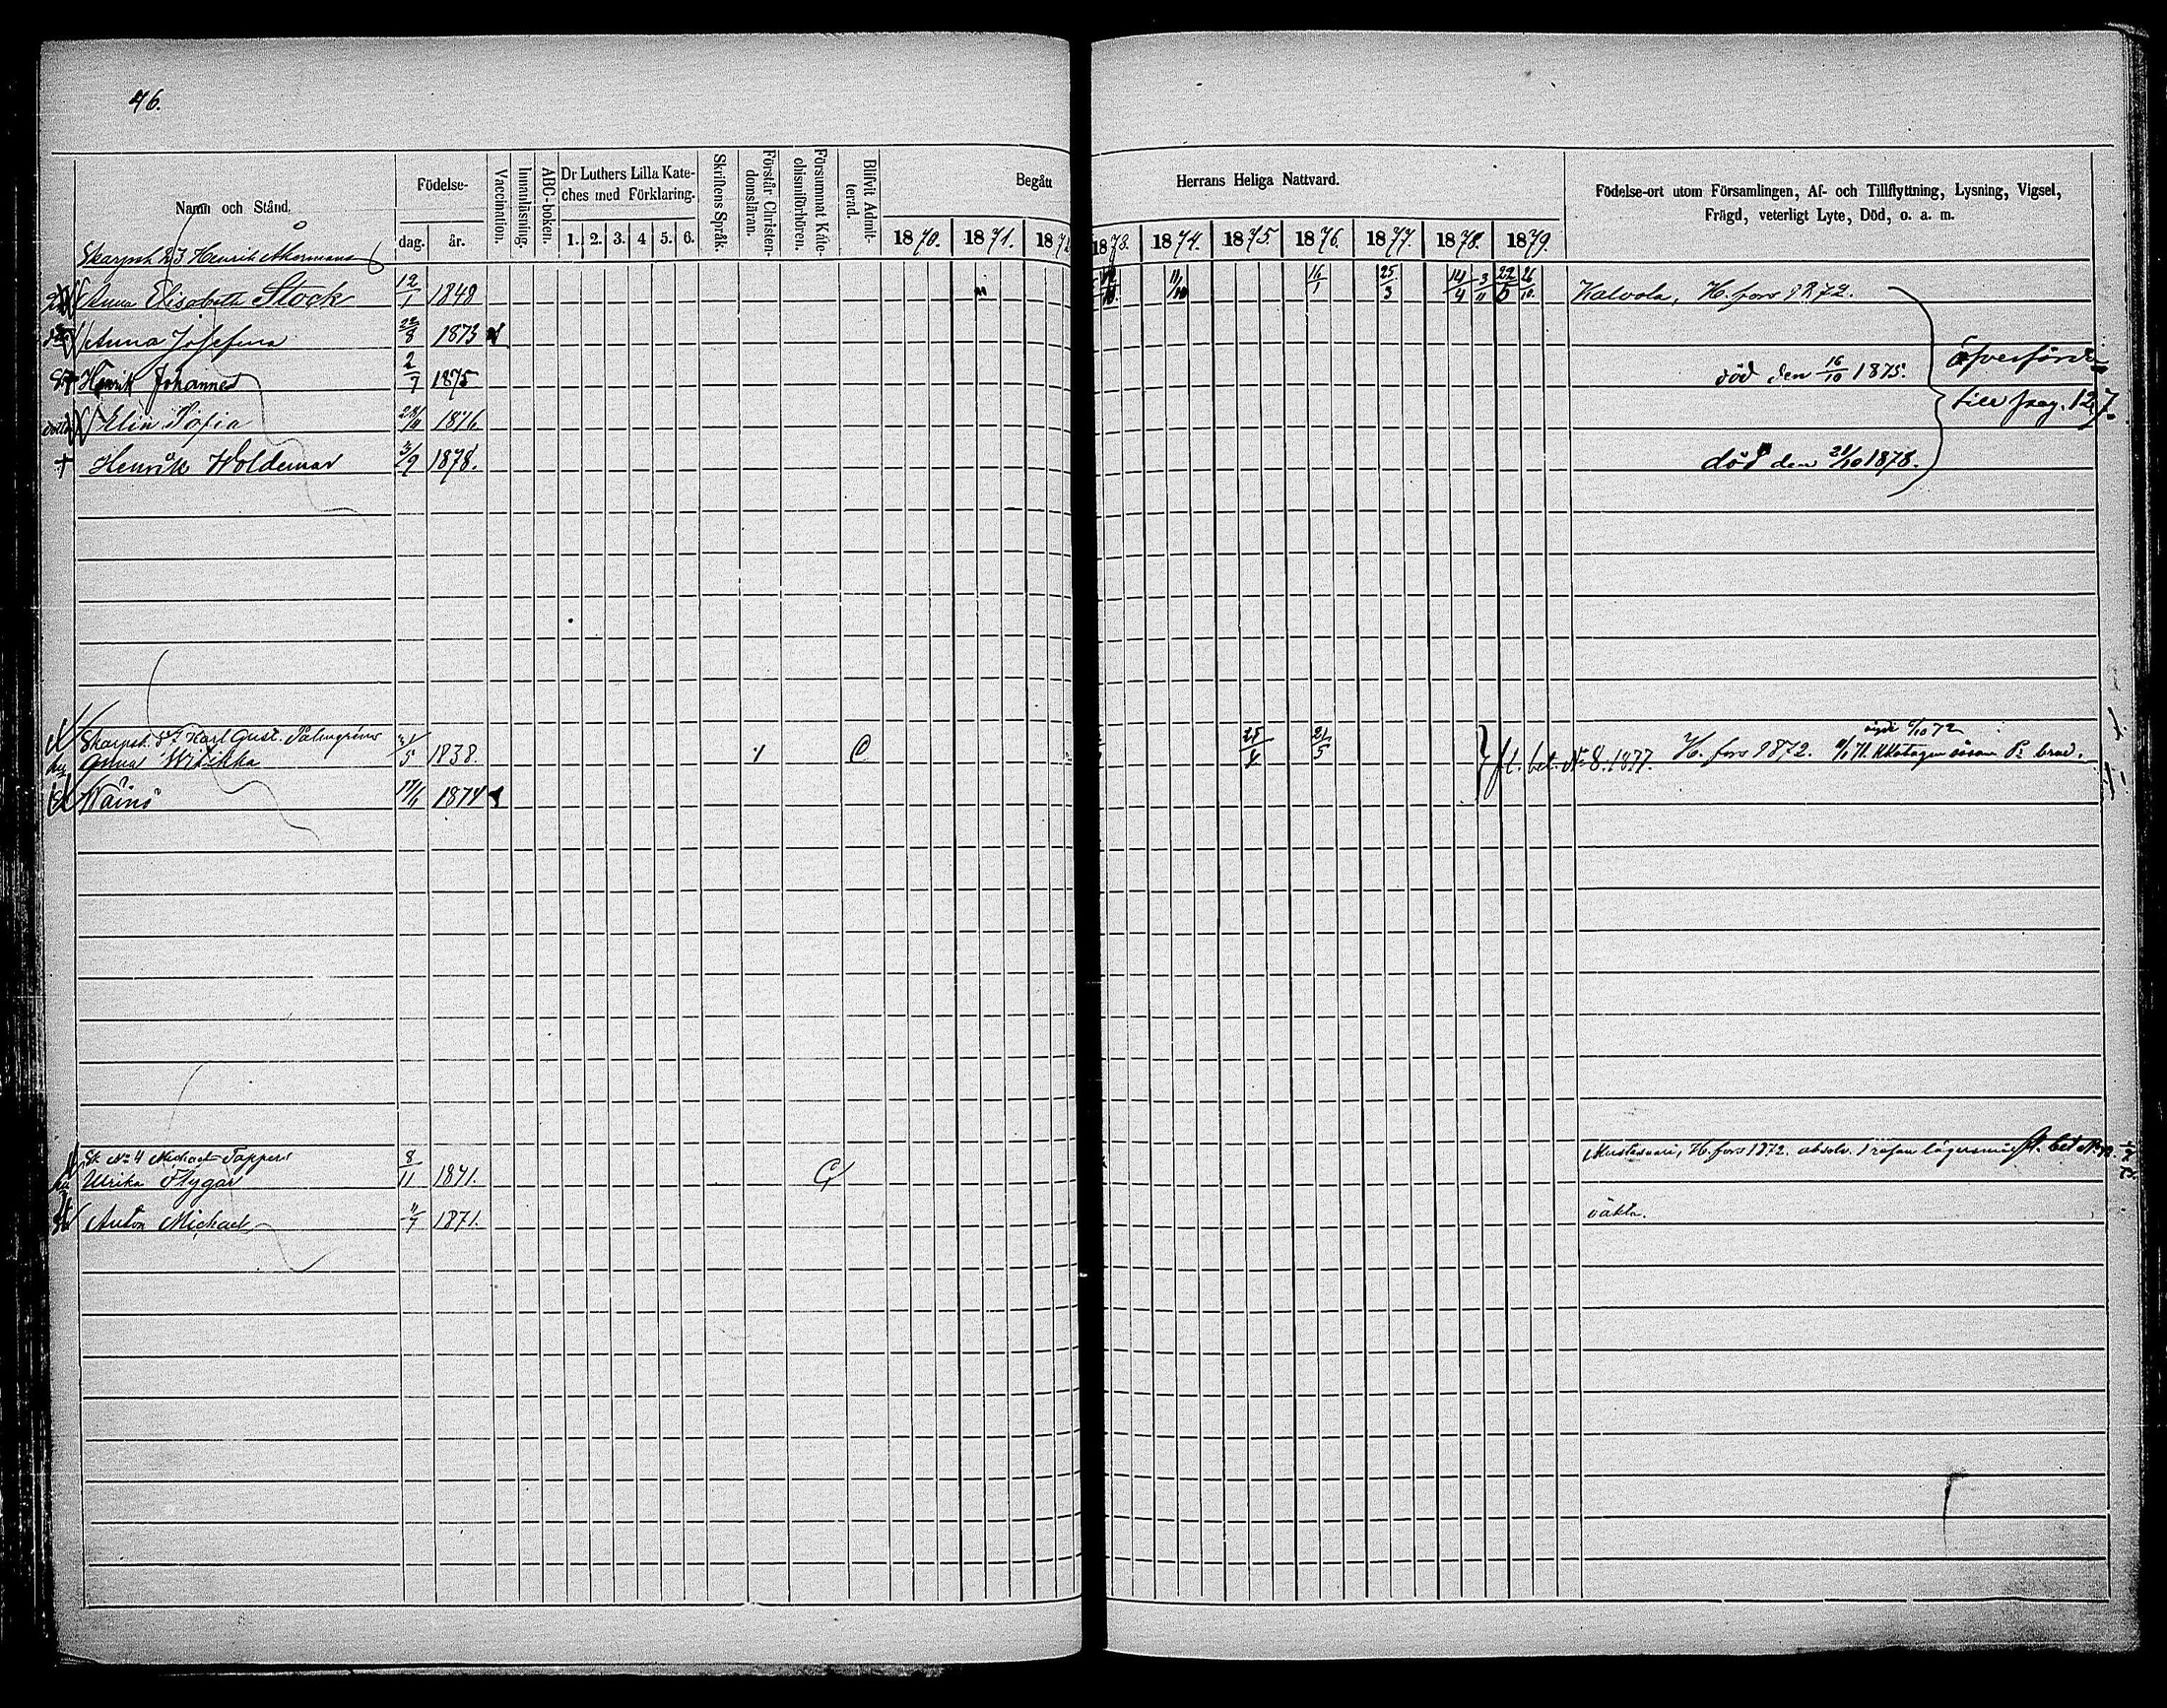 46.
Namn och Stånd.
Födelse-
dag. år.
Vaccination.
Innanläsning.
ABC-boken.
Dr Luthers Lilla Kate-
ches med Förklaring.
1. 2. 3. 4 5. 6.
Skriftens Språk.
Förstår Christen-
domsläran.
Försummat Kate-
chismiförhören.
Blifvit Admit-
terad.
Begått Herrans Heliga Nattvard.
1870. 1871. 187 1873. 1874. 1875. 1876. 1877. 1878. 1879.
Födelse-ort utom Församlingen, Af- och Tillflyttning, Lysning, Vigsel,
Frägd, veterligt Lyte, Död, o. a. m.
Skarpsk. 23 Henrik Åkermans
Anna Elisabeth Stock 12/1 1848 11/10 16/1 25/3 14/4 3/11 22/5 26/10 Kalvola, H.fors 1872.
Anna Josefina 22/8 1873
Henrik Johannes 2/7 1875 död den 16/10 1875.
öfverförde
till pag. 127.
Elin Sofia 1876
Henrik Woldemar 3/9 1878. död den 21/10 1878.
Skarpsk. Karl Gust. Palmgréns
Wikikka 31/5 1838. C 25/4 21/5 fl. bet. No 8. 1877. H.fors 1872.
Wäinö 17/6 1874
Sk. No 4 Michael Tappers
Ulrika Flygar 8/11 1841. H.fors 1872. absolv.
Anton Michael 11/7 1871.